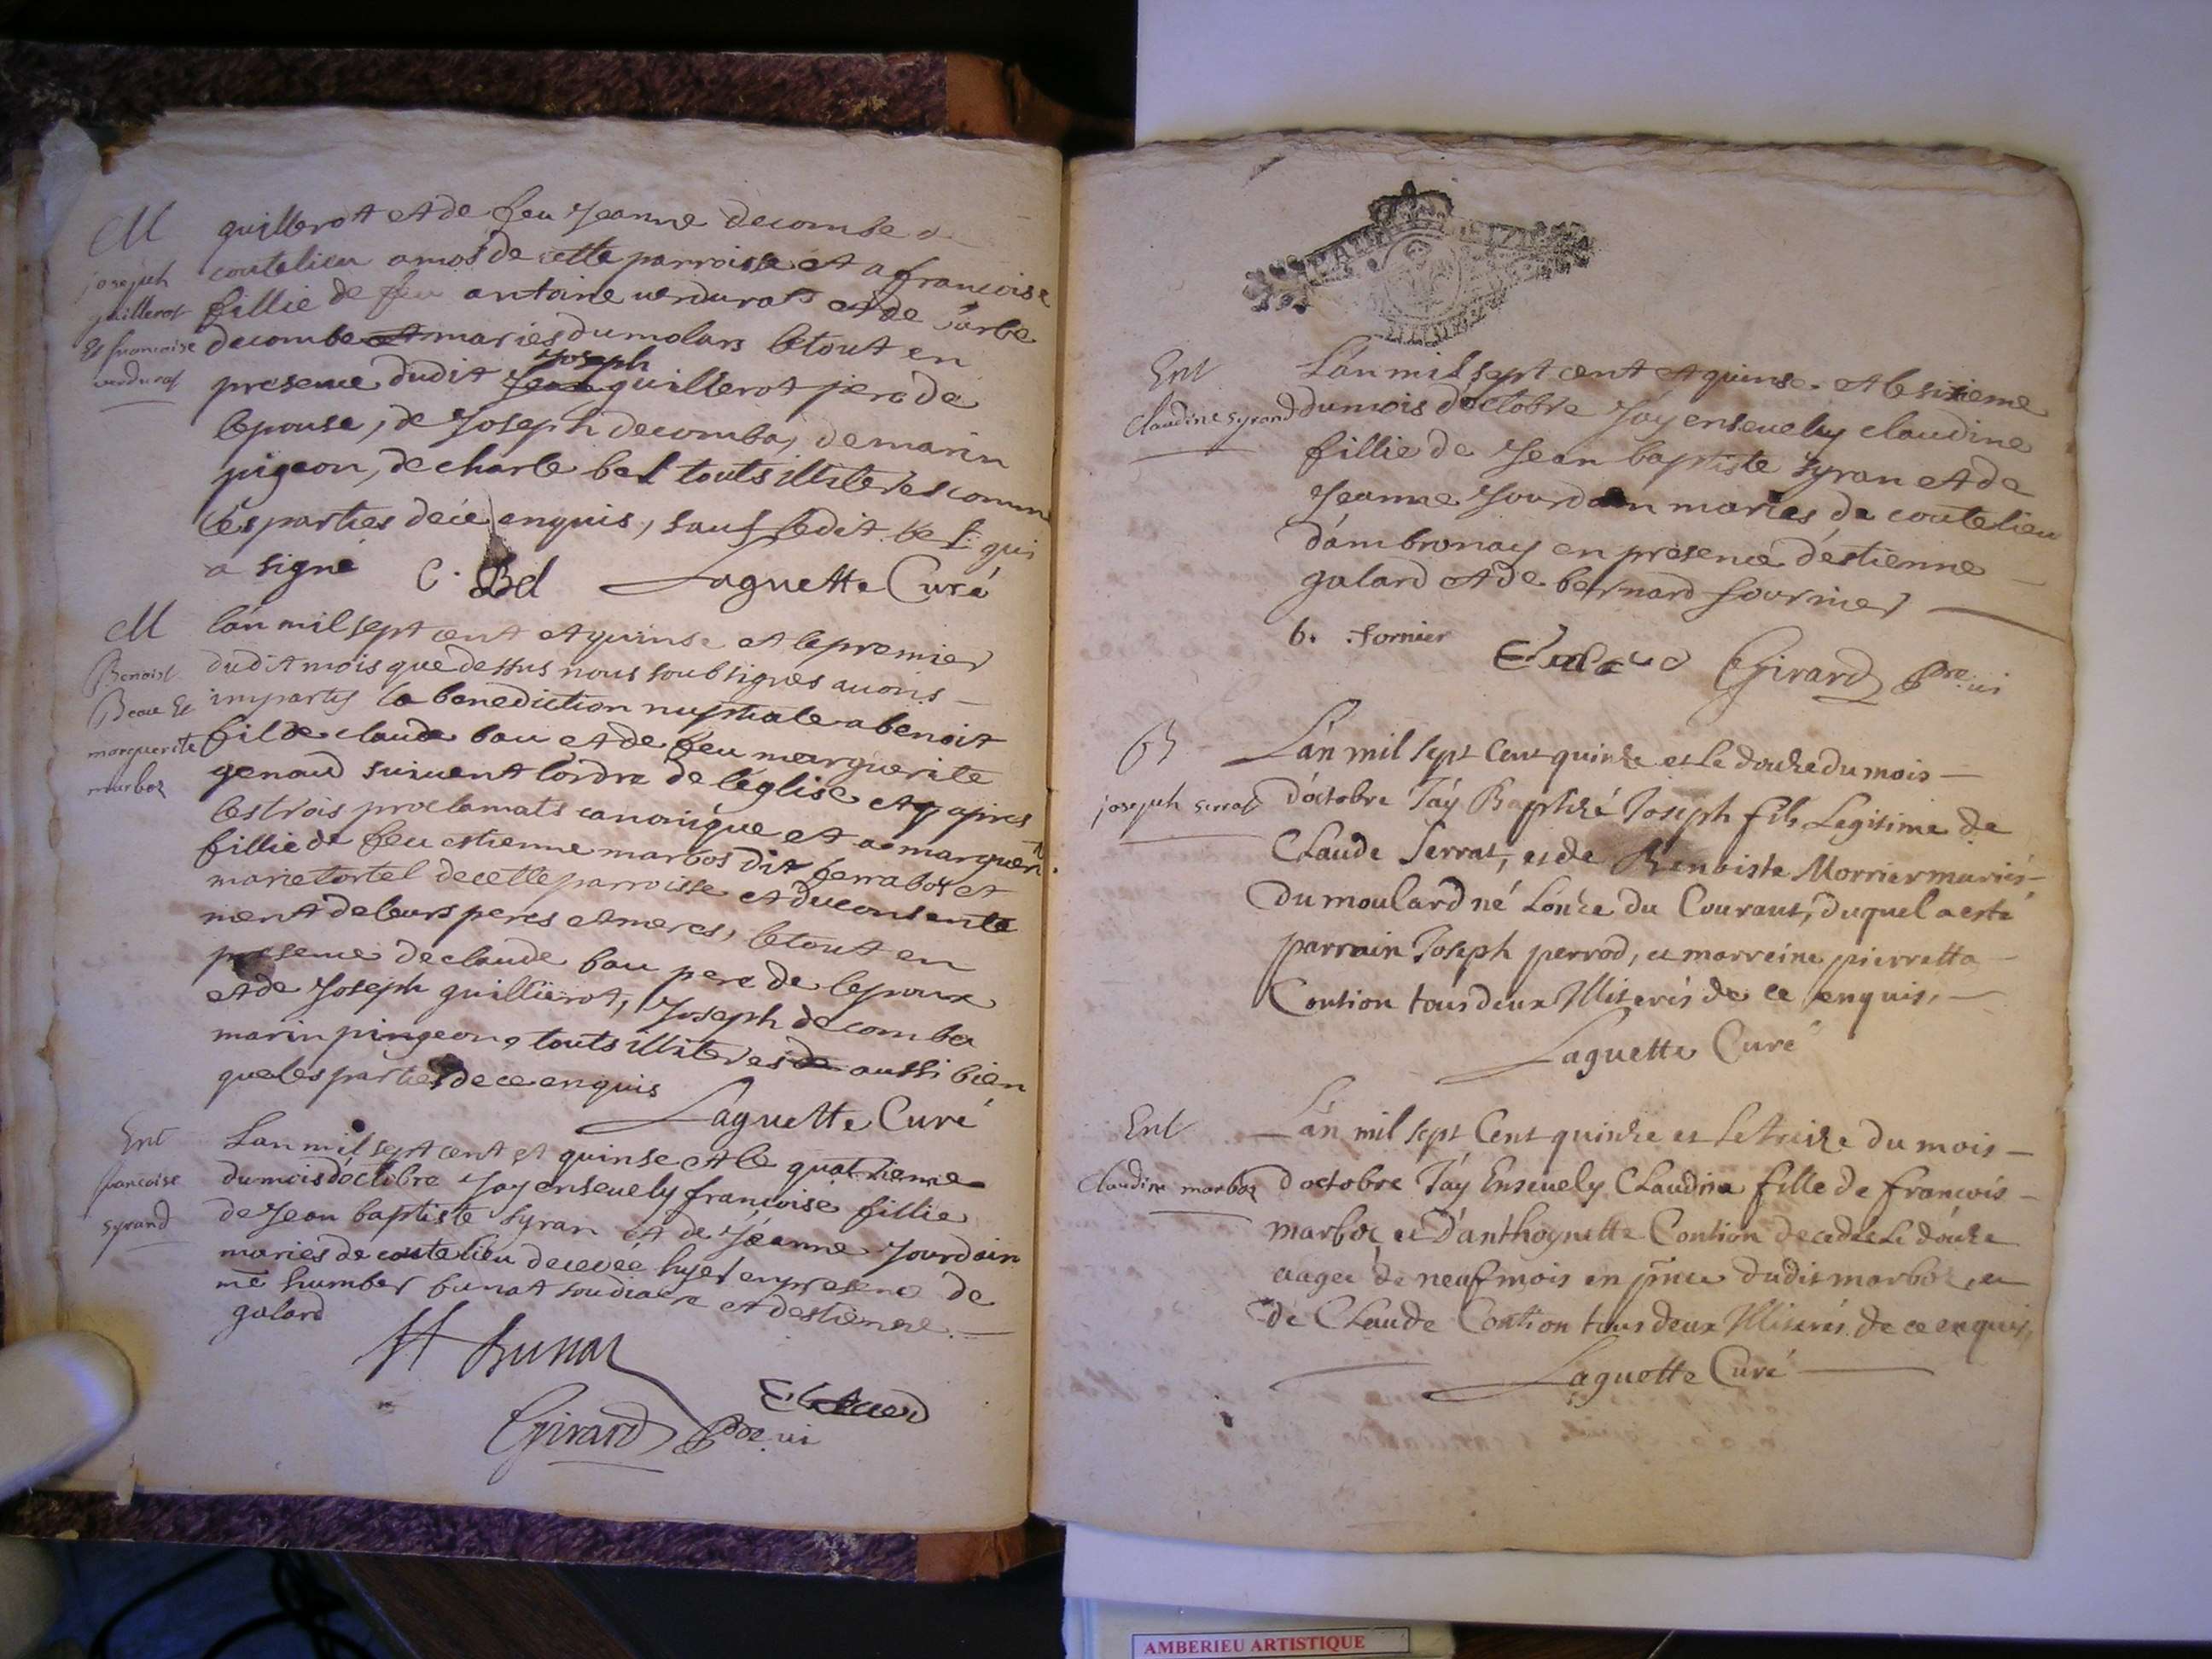 M
joseph
guillerot
Et francoise
verduraz
guillerot et de feu Jeanne decombe
coutelieu amos de cette parroisse et a francoise
fillie de feu antoine verduras et de barbe
decombe et maries du molars le tout en
Joseph
presence dudit Jean guillerot pere de
lepouse, de Joseph decomba, de marin
pigeon, de charle bel touts illiteres comme
les parties de ce enquis, sauf ledit bel qui
a signé C. Bel Laguette Curé
M
Benoist
Beau Et
marguerite
marboz
lan mil sept cent et quinse et le premier
dudit mois que dessus nous soubsignes avons
imparty la benediction nuptiale a benoit
fil de claude bau et de feu marguerite
genaud suivent lordre de léglise et apres
les trois proclamats canonique et a marguerite
fillie de feu estienne marbos dit ferraboz et
marie tortel de cette parroisse et du consente
ment de leurs peres et meres, le tout en
presence de claude bau pere de lepoux
et de Joseph guillierot, Joseph decomba
marin pingeon, touts illiteres de aussi bien
que les parties de ce enquis
Laguette Curé
Ent
francoise
syrand
Lan mil sept cent et quinse et le quatrieme
du mois doctobre Jay ensevely françoise fillie
de Jean baptiste syran et de Jeanne Jourdain
maries de coutelieu en presence de
humber bunat soudiacre et destienne
galard
H Bunat
Girard
Ent
Claudine syrand
Lán mil sept cent et quinse et le sixieme
du mois d'octobre Jáy ensevely claudine
fillie de Jean baptiste syran et de
Jeanne Jourdain maries de coutelieu
d'ambronay en presence déstienne
galard et de bernard fournier
b. fornier Girard
B
joseph serrat
Lán mil sept cent quinze et le douze du mois
d'octobre Jáy Baptizé Joseph fils Legitime de
Claude Serrat, et de Benoiste Morrier mariés
du moulard né Lonze du Courant, duquel a esté
parrain Joseph perrod, et marreine pierretta
Contion tous deux Illiterés de ce enquis,
Laguette Curé
Ent
Claudine marboz
Lán mil sept Cent quinze et le treize du mois
d'octobre Jáy Ensevely Claudina fille de françois
marboz et D'anthoynette Contion decedée Le douze
aagée de neuf mois en pnce dudit marboz, et
de Claude Contion tous deux Illiterés de ce enquis,
Laguette Curé
AMBERIEU ARTISTIQUE